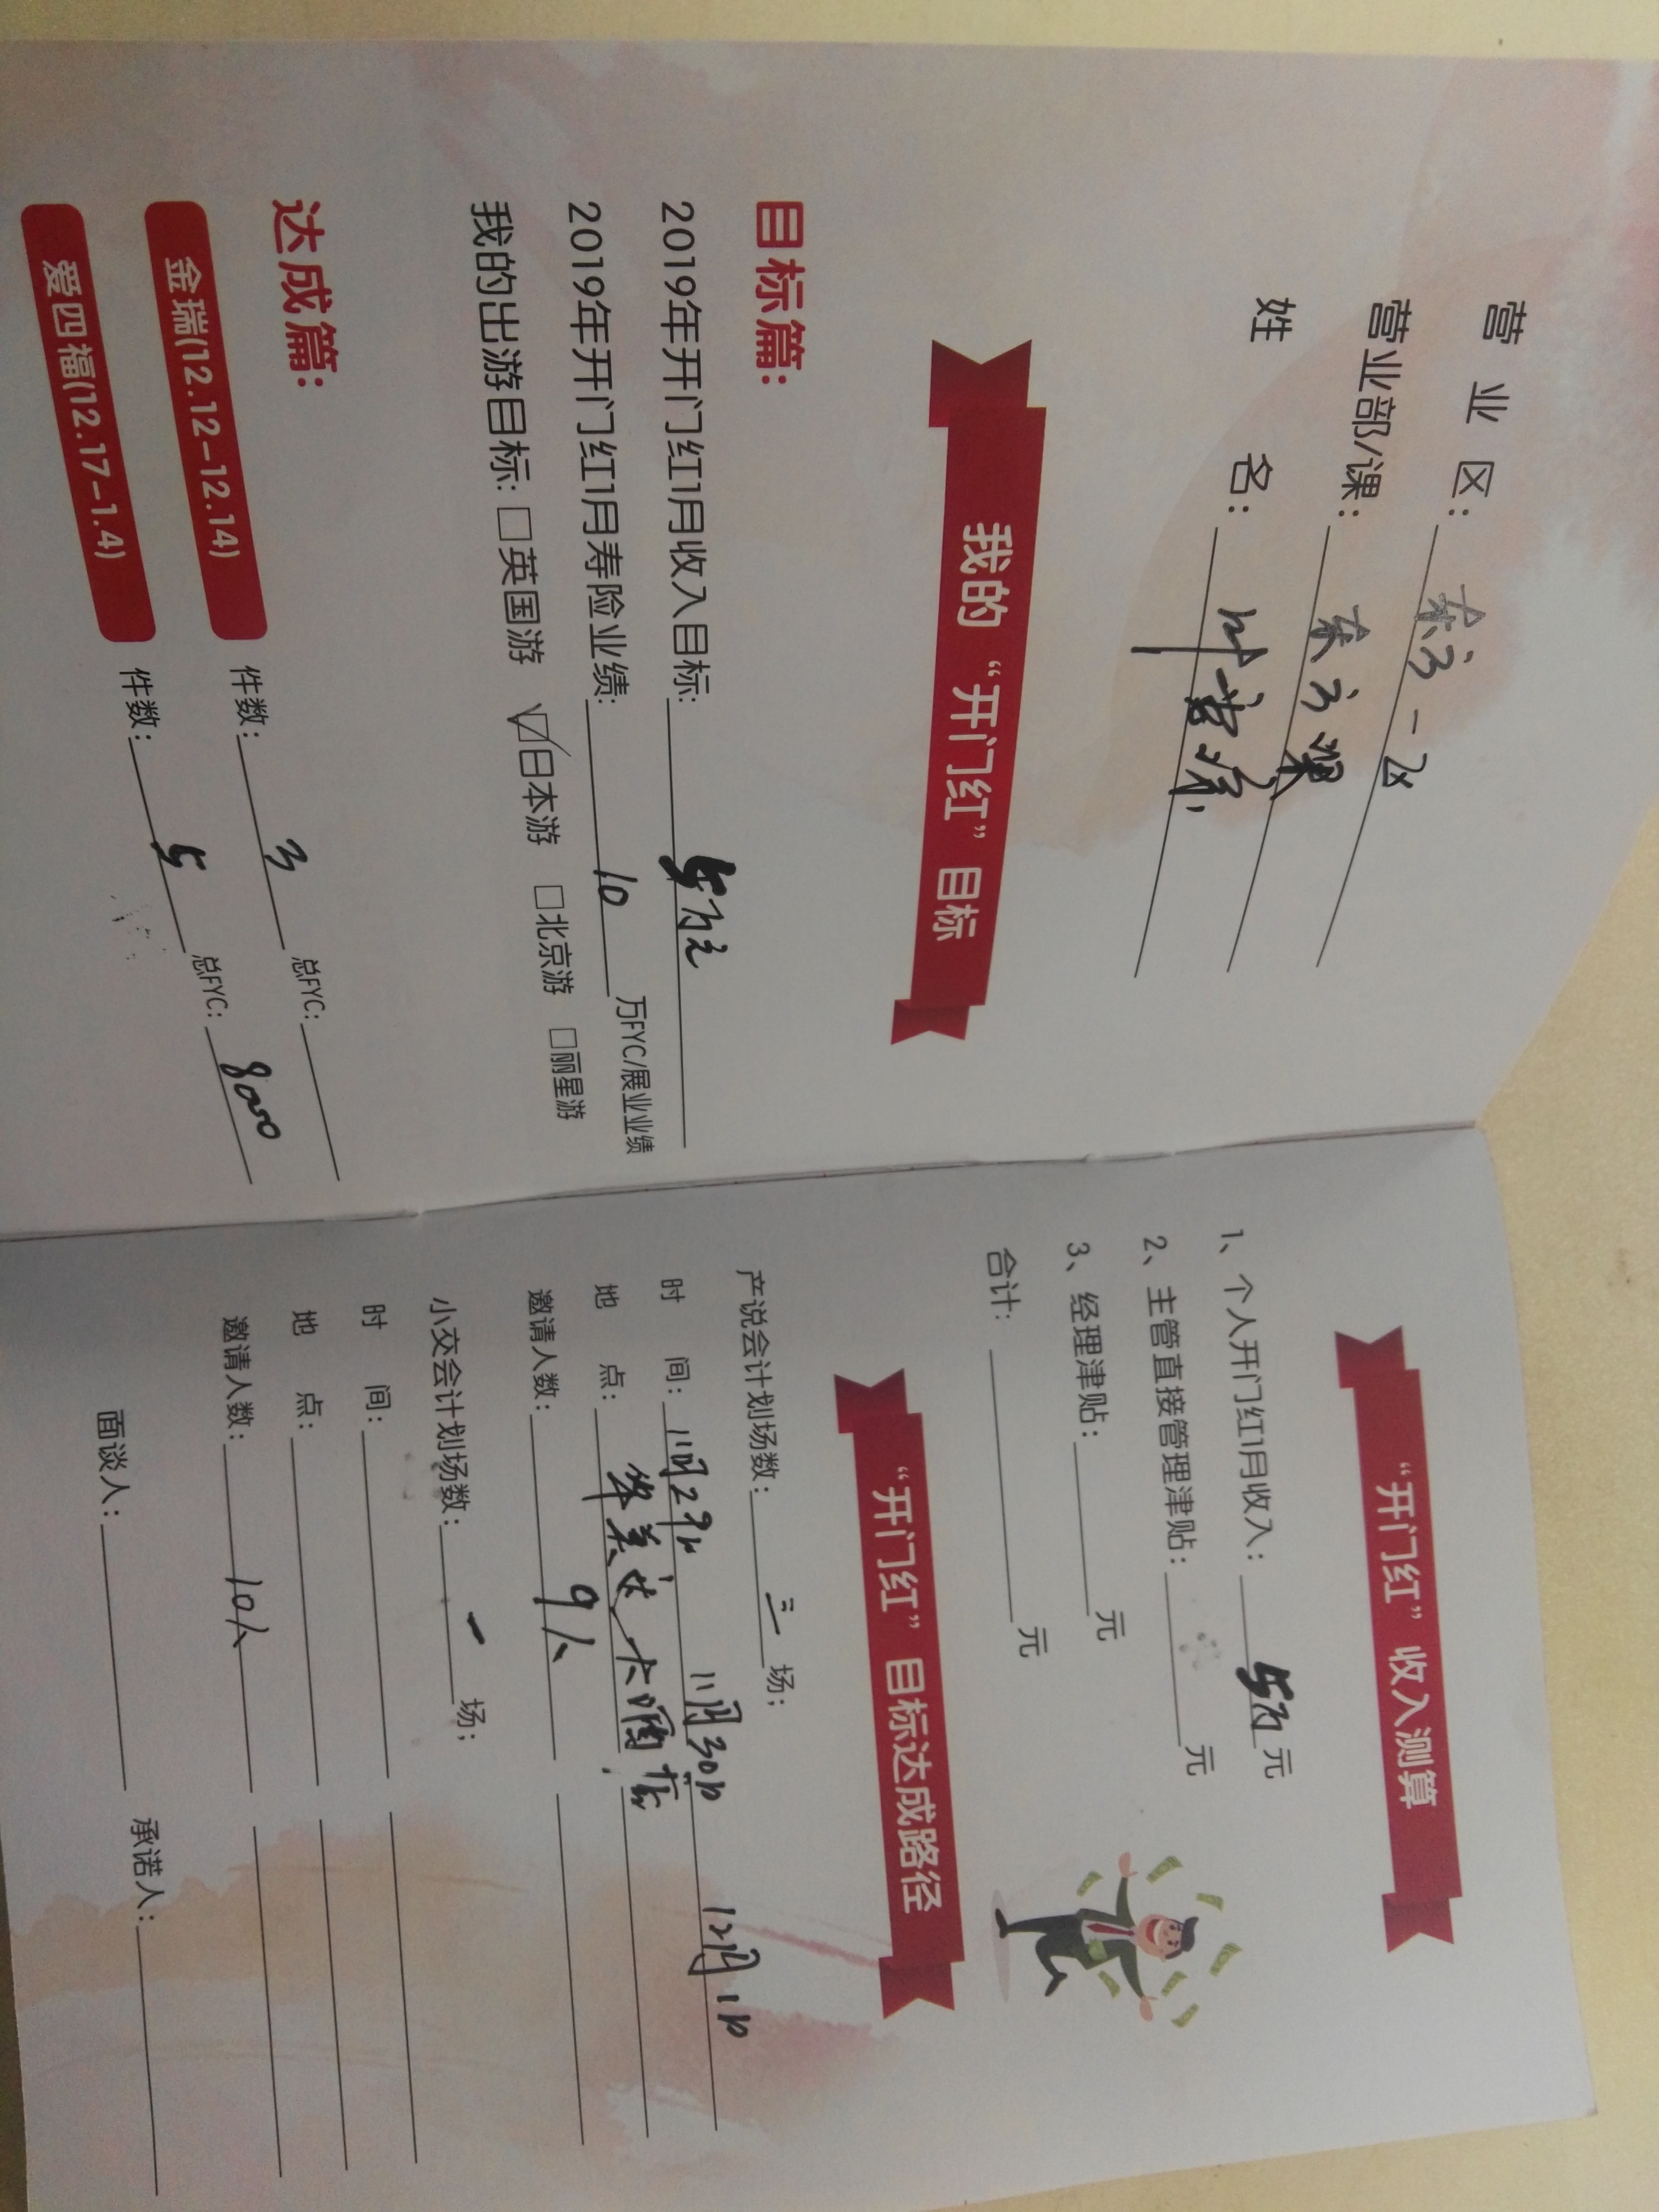 营业区：东方一区
营业部/课：东方课
姓名：叶
我的“开门红”目标
目标篇：
2019年开门红1月收入目标：5万元
2019年开门红1月寿险业绩：10万FYC/展业业绩
我的出游目标：□英国游 ☑日本游 □北京游 □丽星游
达成篇：
金瑞(12.12-12.14) 件数：3 总FYC：
爱四福(12.17-1.4) 件数：5 总FYC：8000
“开门红”收入测算
1、个人开门红1月收入：5万元
2、主管直接管理津贴：元
3、经理津贴：元
合计：元
“开门红”目标达成路径
产说会计划场数：三场；
时间：11月29日 11月30日 12月1日
地点：华美达大酒店
邀请人数：9人
小交会计划场数：一场；
时间：
地点：
邀请人数：10人
面谈人： 承诺人：